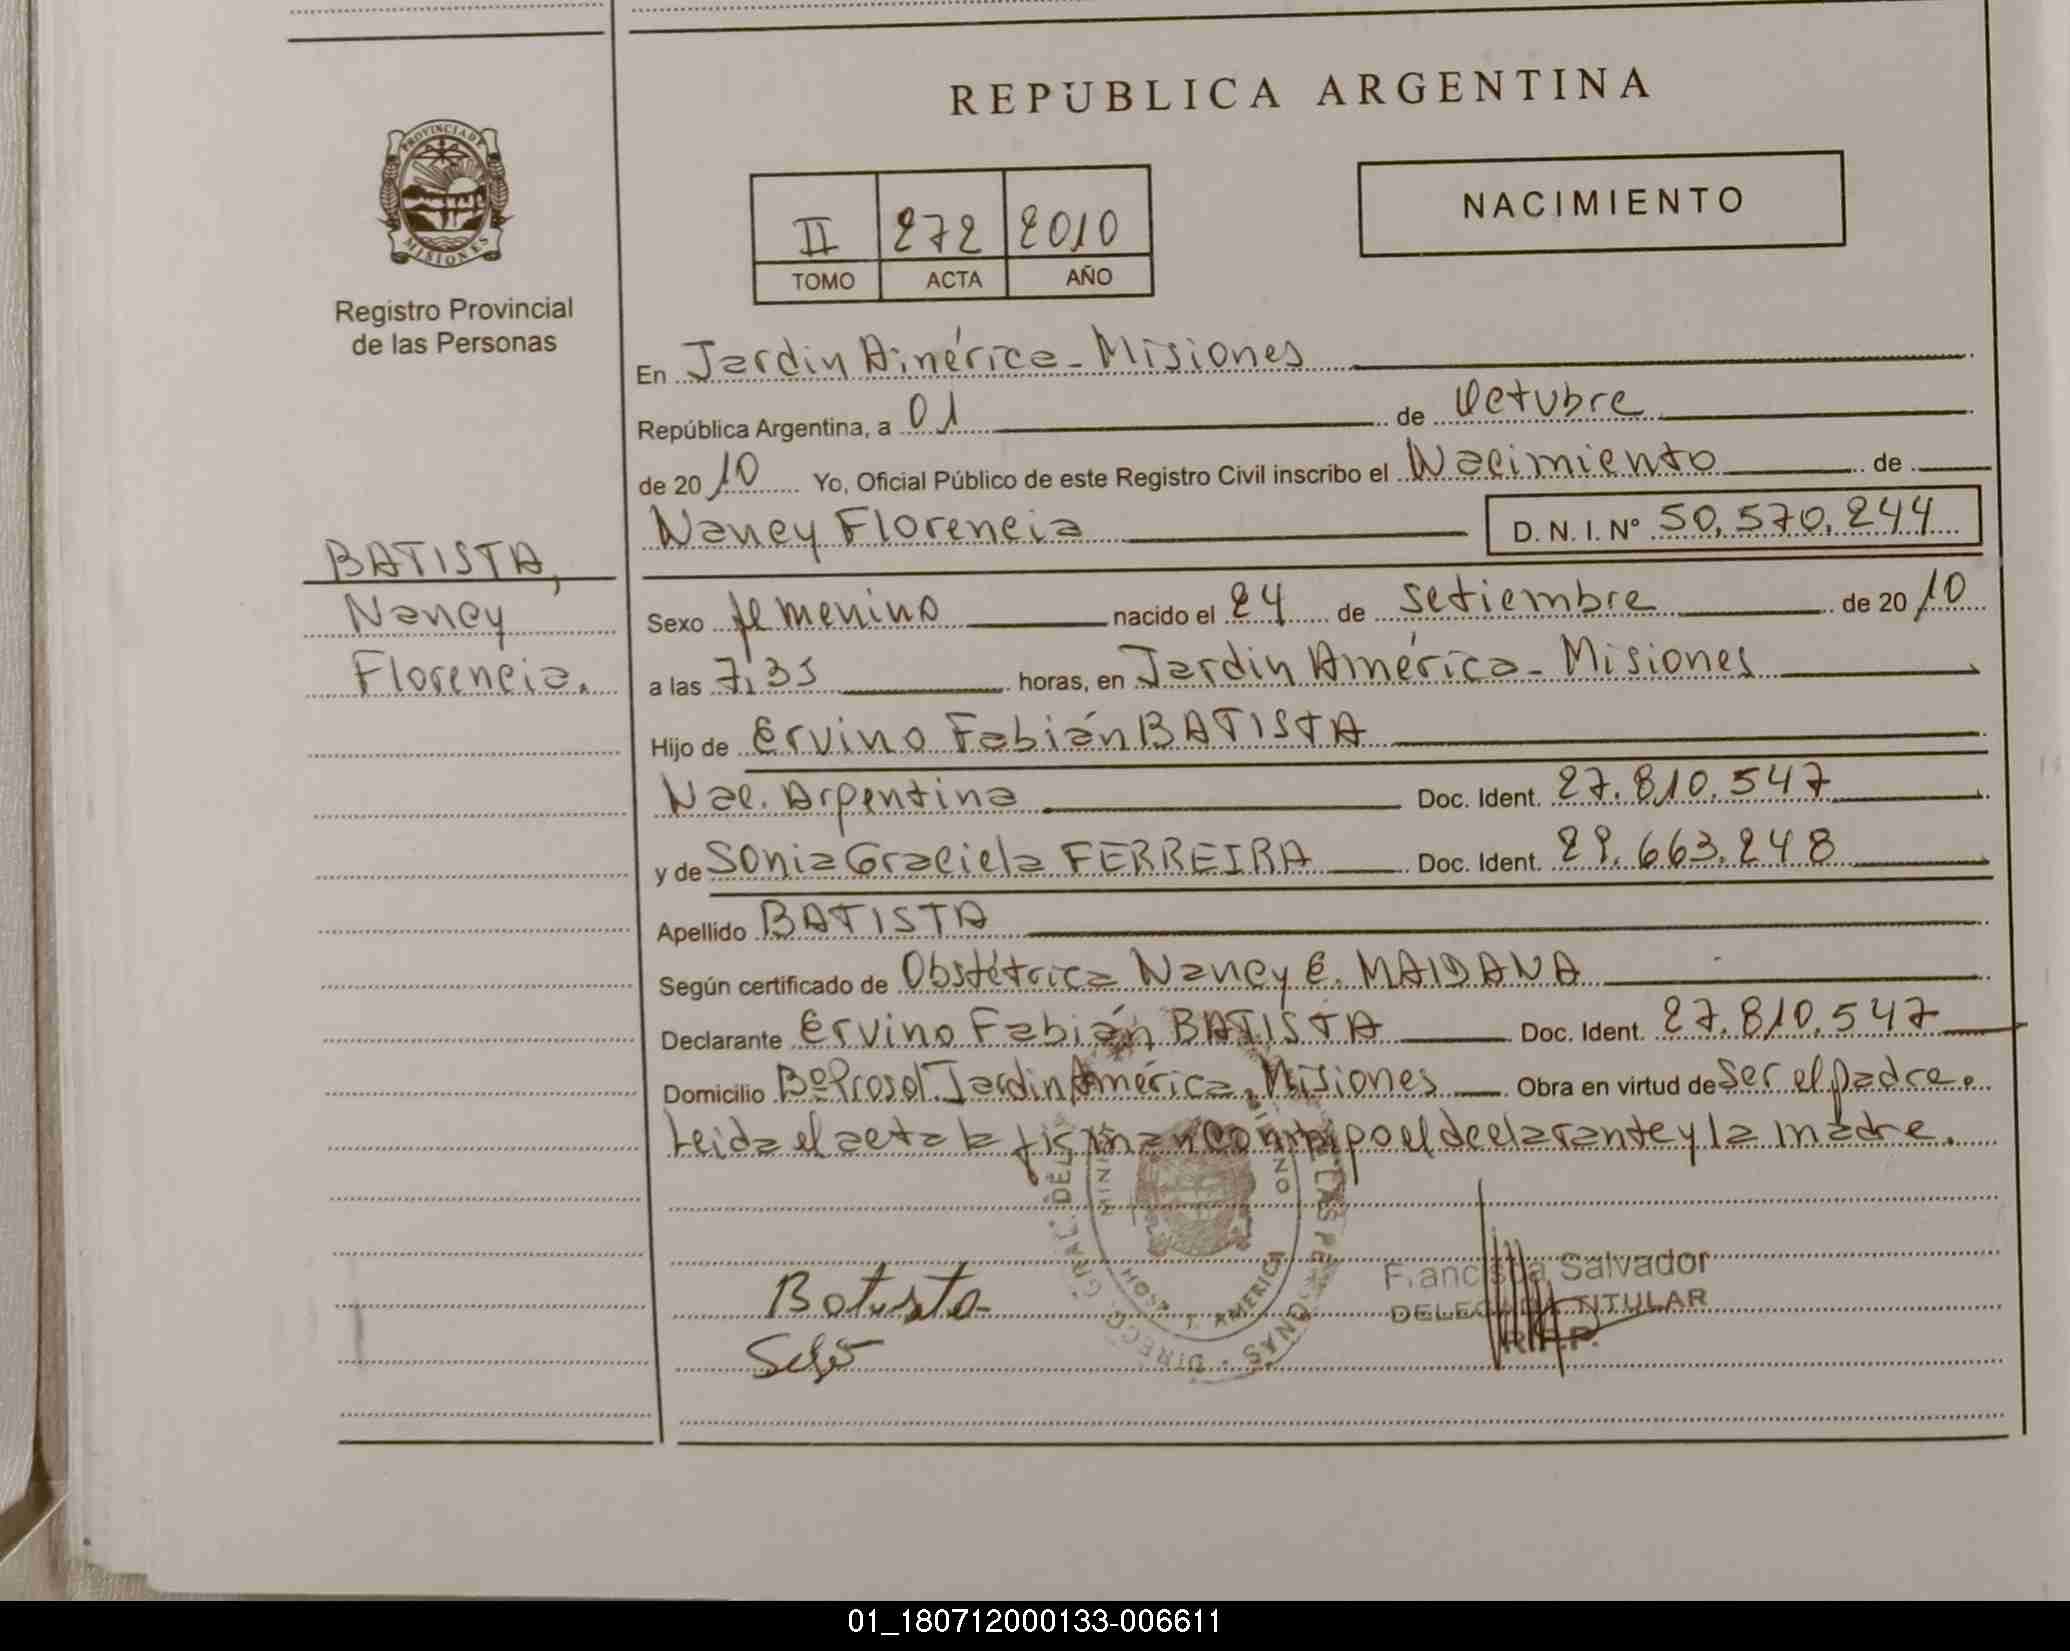 REPUBLICA ARGENTINA
PROVINCIA DE
MISIONES
Registro Provincial
de las Personas
II 272 2010
TOMO ACTA AÑO
NACIMIENTO
En Jardin América - Misiones
República Argentina, a 01 de Octubre
de 2010 Yo, Oficial Público de este Registro Civil inscribo el Nacimiento de
Nancy Florencia D. N. I. Nº 50.570.244
BATISTA,
Nancy
Florencia.
Sexo femenino nacido el 24 de setiembre de 2010
a las 7,35 horas, en Jardin América - Misiones
Hijo de Ervino Fabián BATISTA
Nac. Argentina Doc. Ident. 27.810.547
y de Sonia Graciela FERREIRA Doc. Ident. 29.663.248
Apellido BATISTA
Según certificado de Obstétrica Nancy E. MAIDANA
Declarante Ervino Fabián BATISTA Doc. Ident. 27.810.547
Domicilio Bº Prosol. Jardin América, Misiones Obra en virtud de Ser el padre.
Leida el acta la firman conmigo el declarante y la madre.
Batista
Salvador
DELEGADA TITULAR
R.P.P.
01_180712000133-006611